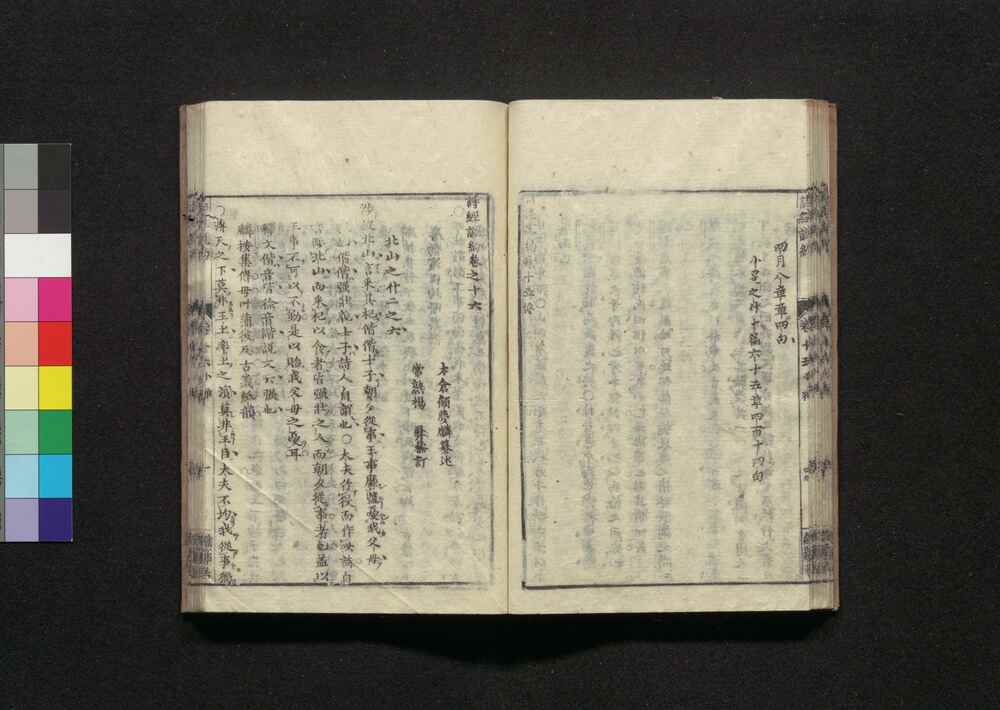 四月八章章四句
小旻之什十篇六十五章四百十四句
詩經說約卷之十六
太倉顧夢麟纂述
常熟楊 彝參訂
北山之什二之六
陟彼北山言采其杞偕偕士子朝夕從事王事靡盬憂我父母
偕偕強壯貌士子詩人自謂也〇大夫行役而作此詩自
言陟北山而采杞以食者皆強壯之人而朝夕從事者也蓋以
王事不可以不勤是以貽我父母之憂耳
釋文偕音皆徐音諧說文云強也
麟按集傳母叶滿彼反古義紙韻
〇溥天之下莫非王土率土之濱莫非王臣大夫不均我從事獨